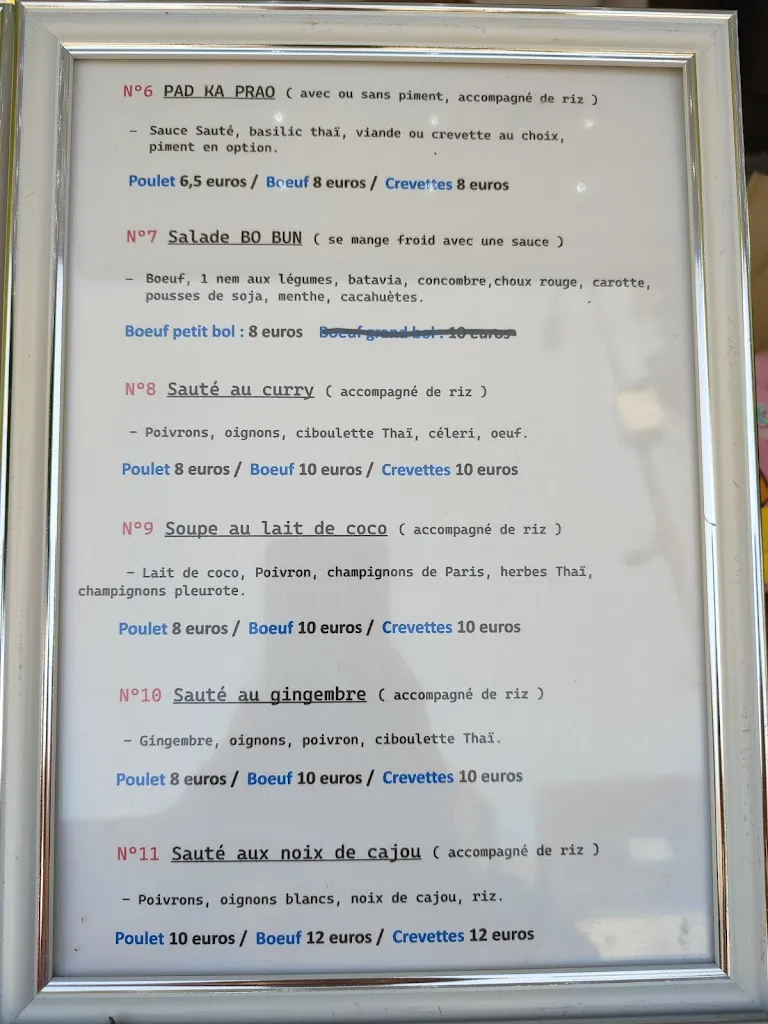 N°6 PAD KA PRAO ( avec ou sans piment, accompagné de riz )
- Sauce Sauté, basilic thaï, viande ou crevette au choix,
piment en option.
Poulet 6,5 euros / Boeuf 8 euros / Crevettes 8 euros
N°7 Salade BO BUN ( se mange froid avec une sauce )
- Boeuf, 1 nem aux légumes, batavia, concombre,choux rouge, carotte,
pousses de soja, menthe, cacahuètes.
Boeuf petit bol : 8 euros Boeuf grand bol : 10 euros
N°8 Sauté au curry ( accompagné de riz )
- Poivrons, oignons, ciboulette Thaï, céleri, oeuf.
Poulet 8 euros / Boeuf 10 euros / Crevettes 10 euros
N°9 Soupe au lait de coco ( accompagné de riz )
- Lait de coco, Poivron, champignons de Paris, herbes Thaï,
champignons pleurote.
Poulet 8 euros / Boeuf 10 euros / Crevettes 10 euros
N°10 Sauté au gingembre ( accompagné de riz )
- Gingembre, oignons, poivron, ciboulette Thaï.
Poulet 8 euros / Boeuf 10 euros / Crevettes 10 euros
N°11 Sauté aux noix de cajou ( accompagné de riz )
- Poivrons, oignons blancs, noix de cajou, riz.
Poulet 10 euros / Boeuf 12 euros / Crevettes 12 euros